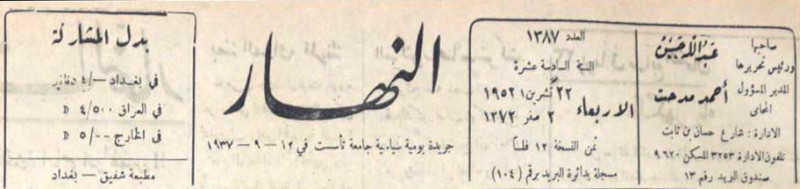 صاحبها
ورئيس تحريرها
عبدالله
المدير المسؤول
المحامي
أحمد مدحت
الادارة : شارع حسان بن ثابت
تلفون الادارة ٣٢٥٣ المسكن ٩٦٢٠
صندوق البريد رقم ١٣
العدد ١٣٨٧
السنة السادسة عشرة
الاربعاء
٢٢ تشرين١ ١٩٥٢
٢ صفر ١٣٧٢
ثمن النسخة ١٢ فلسا
مسجلة بدائرة البريد برقم (١٠٤)
النهار
جريدة يومية سياسية جامعة تأسست في ١٢ – ٩ – ١٩٣٧
بدل المشاركة
في بغداد -/٤ دنانير
في العراق ٤/٥٠٠ »
في الخارج ٥/٠٠ »
مطبعة شفيق – بغداد